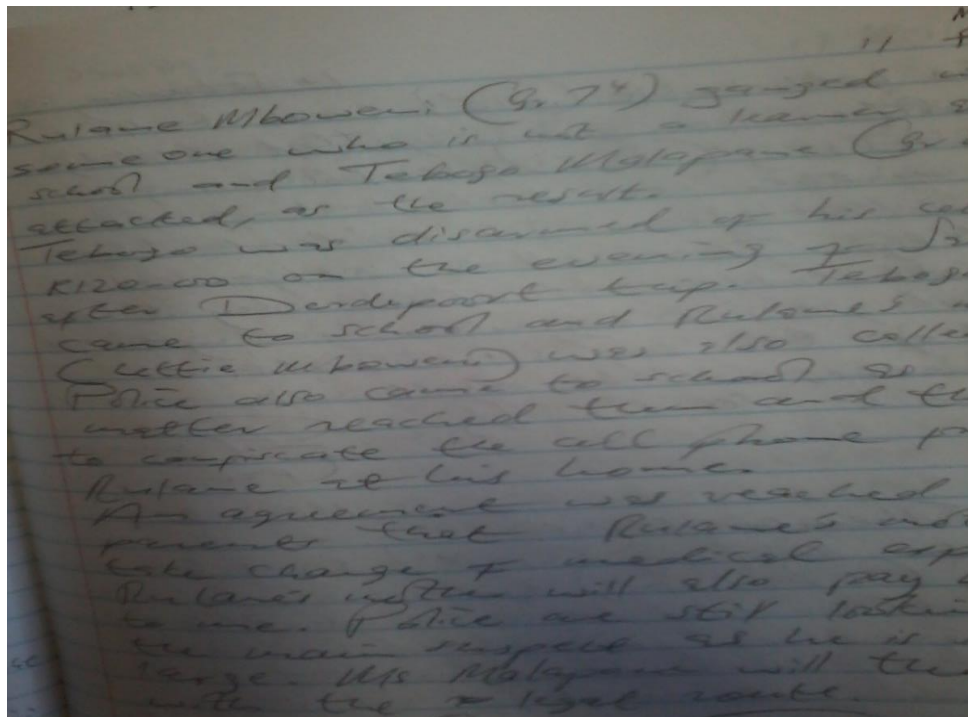 11
Rulane Mboweni (Gr. 7⁴) ganged
someone who is not a learner
school and Tebogo Malapane (Gr
attacked, as the result.
Tebogo was disarmed of his
R120-00 on the evening of
after Derdepoort trip. Tebogo
came to school and Rulane's
(Lettie Mboweni) was also
Police also came to school as
matter reached them and
to compiscate the cell phone
Rulane at his home.
An agreement was reached
parents that Rulane's
take charge of medical
Rulane's mother will also pay
to me. Police are still
the main suspect as he is
large. Ms Malapane will
with the legal route.